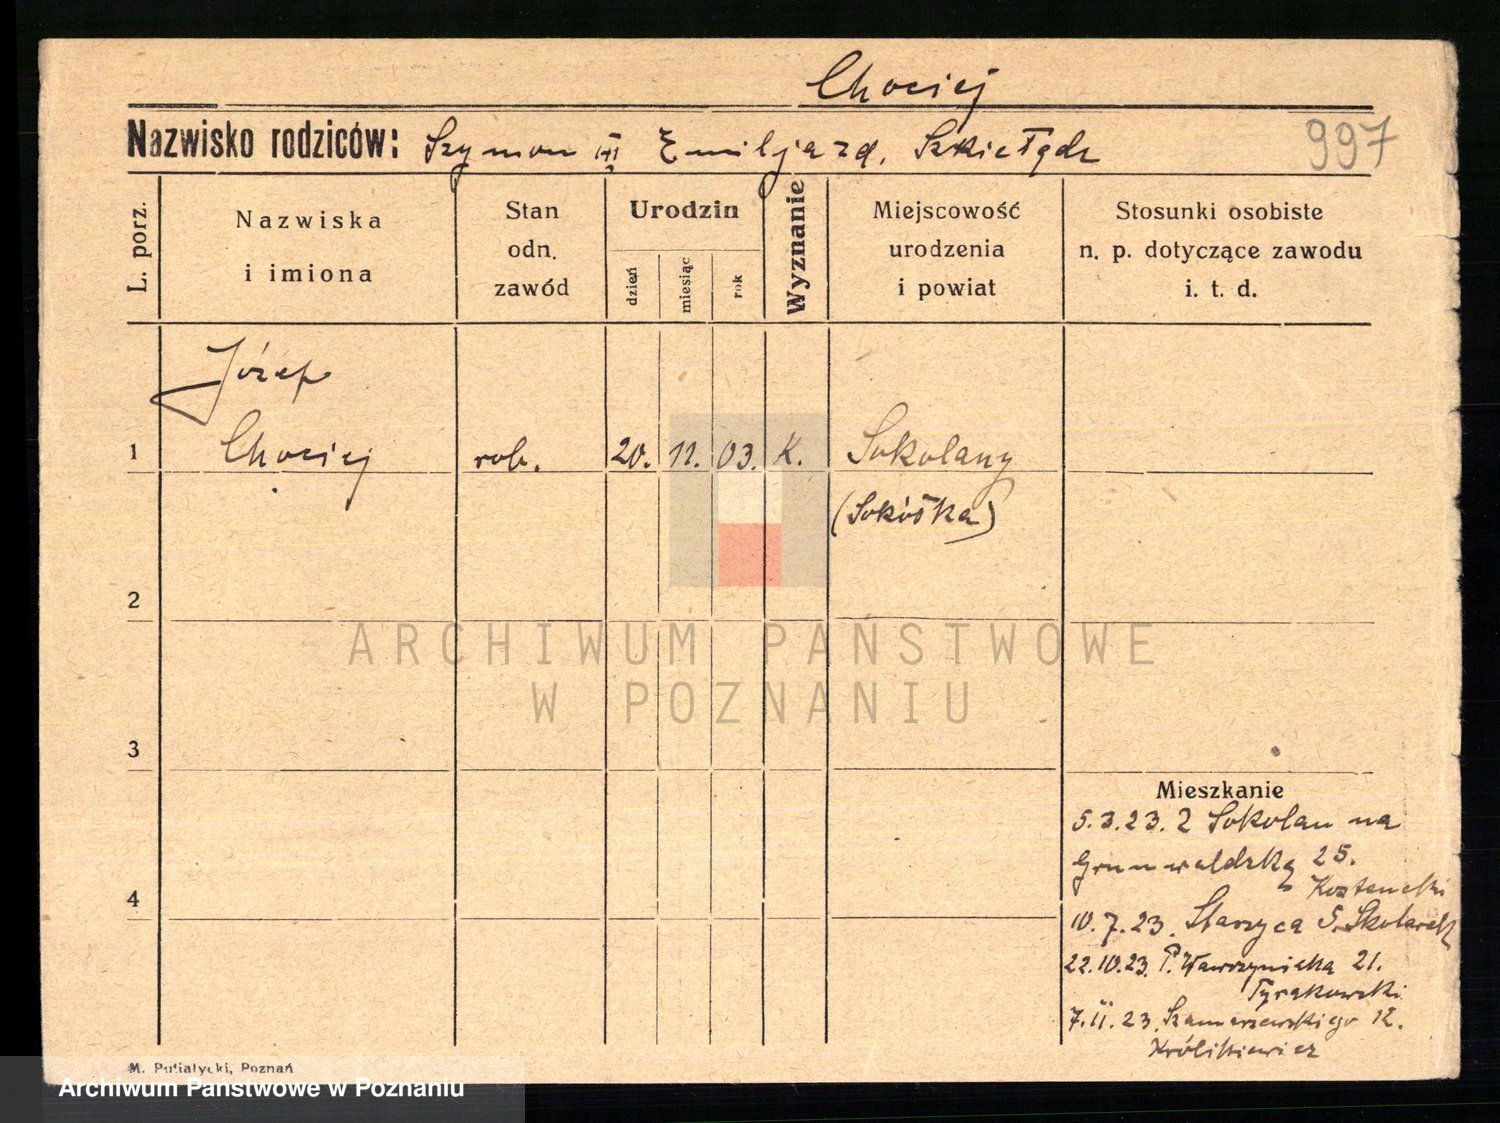 Chociej
Nazwisko rodziców: Szymon i Emilja zd. Szkiełądz
997
L. porz.
Nazwiska
i imiona
Stan
odn.
zawód
Urodzin
dzień
miesiąc
rok
Wyznanie
Miejscowość
urodzenia
i powiat
Stosunki osobiste
n. p. dotyczące zawodu
i. t. d.
Józef
1 Chociej rob. 20. 11. 03. K. Sokolany
(Sokółka)
2
ARCHIWUM PAŃSTWOWE
W POZNANIU
3
Mieszkanie
5.3.23. Z Sokolan na
Grunwaldzką 25.
4
10.7.23. Starzyca 5. Skotarek
22.10.23. P. Wawrzyniaka 21.
Tyrakowski
7.11.23. Szamarzewskiego 12.
Królikiewicz
M. Putiatycki, Poznań
Archiwum Państwowe w Poznaniu